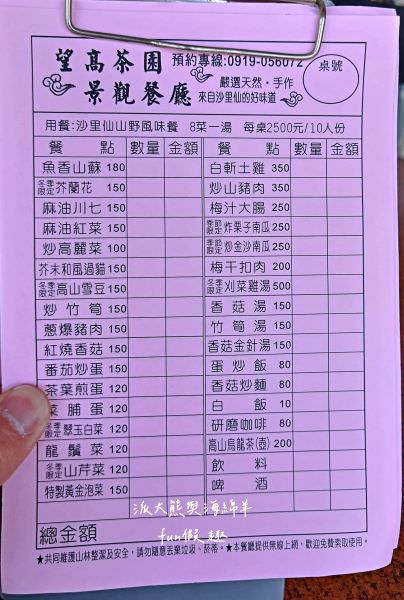 望高茶園
景觀餐廳
預約專線:0919-056072
嚴選天然·手作
來自沙里仙的好味道
桌號
用餐:沙里仙山野風味餐 8菜一湯 每桌2500元/10人份
餐點 數量 金額 餐點 數量 金額
魚香山蘇 180 白斬土雞 350
冬季限定 芥蘭花 150 炒山豬肉 350
麻油川七 150 梅汁大腸 250
麻油紅菜 150 季節限定 炸栗子南瓜 250
炒高麗菜 100 季節限定 炒金沙南瓜 250
芥末和風過貓 150 梅干扣肉 200
冬季限定 高山雪豆 150 冬季限定 刈菜雞湯 500
炒竹筍 150 香菇湯 150
蔥爆豬肉 150 竹筍湯 150
紅燒香菇 150 香菇金針湯 150
番茄炒蛋 150 蛋炒飯 80
茶葉煎蛋 120 香菇炒麵 80
菜脯蛋 120 白飯 10
冬季限定 翠玉白菜 120 研磨咖啡 80
龍鬚菜 120 高山烏龍茶(壺) 200
冬季限定 山芹菜 120 飲料
特製黃金泡菜 150 啤酒
派大熊與海綿羊
fun假趣
總金額
★共同維護山林整潔及安全，請勿隨意丟棄垃圾、菸蒂。★本餐廳提供無線上網，歡迎免費索取使用。